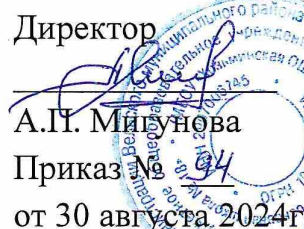 Директор
А.П. Мигунова
Приказ № 94
от 30 августа 2024г